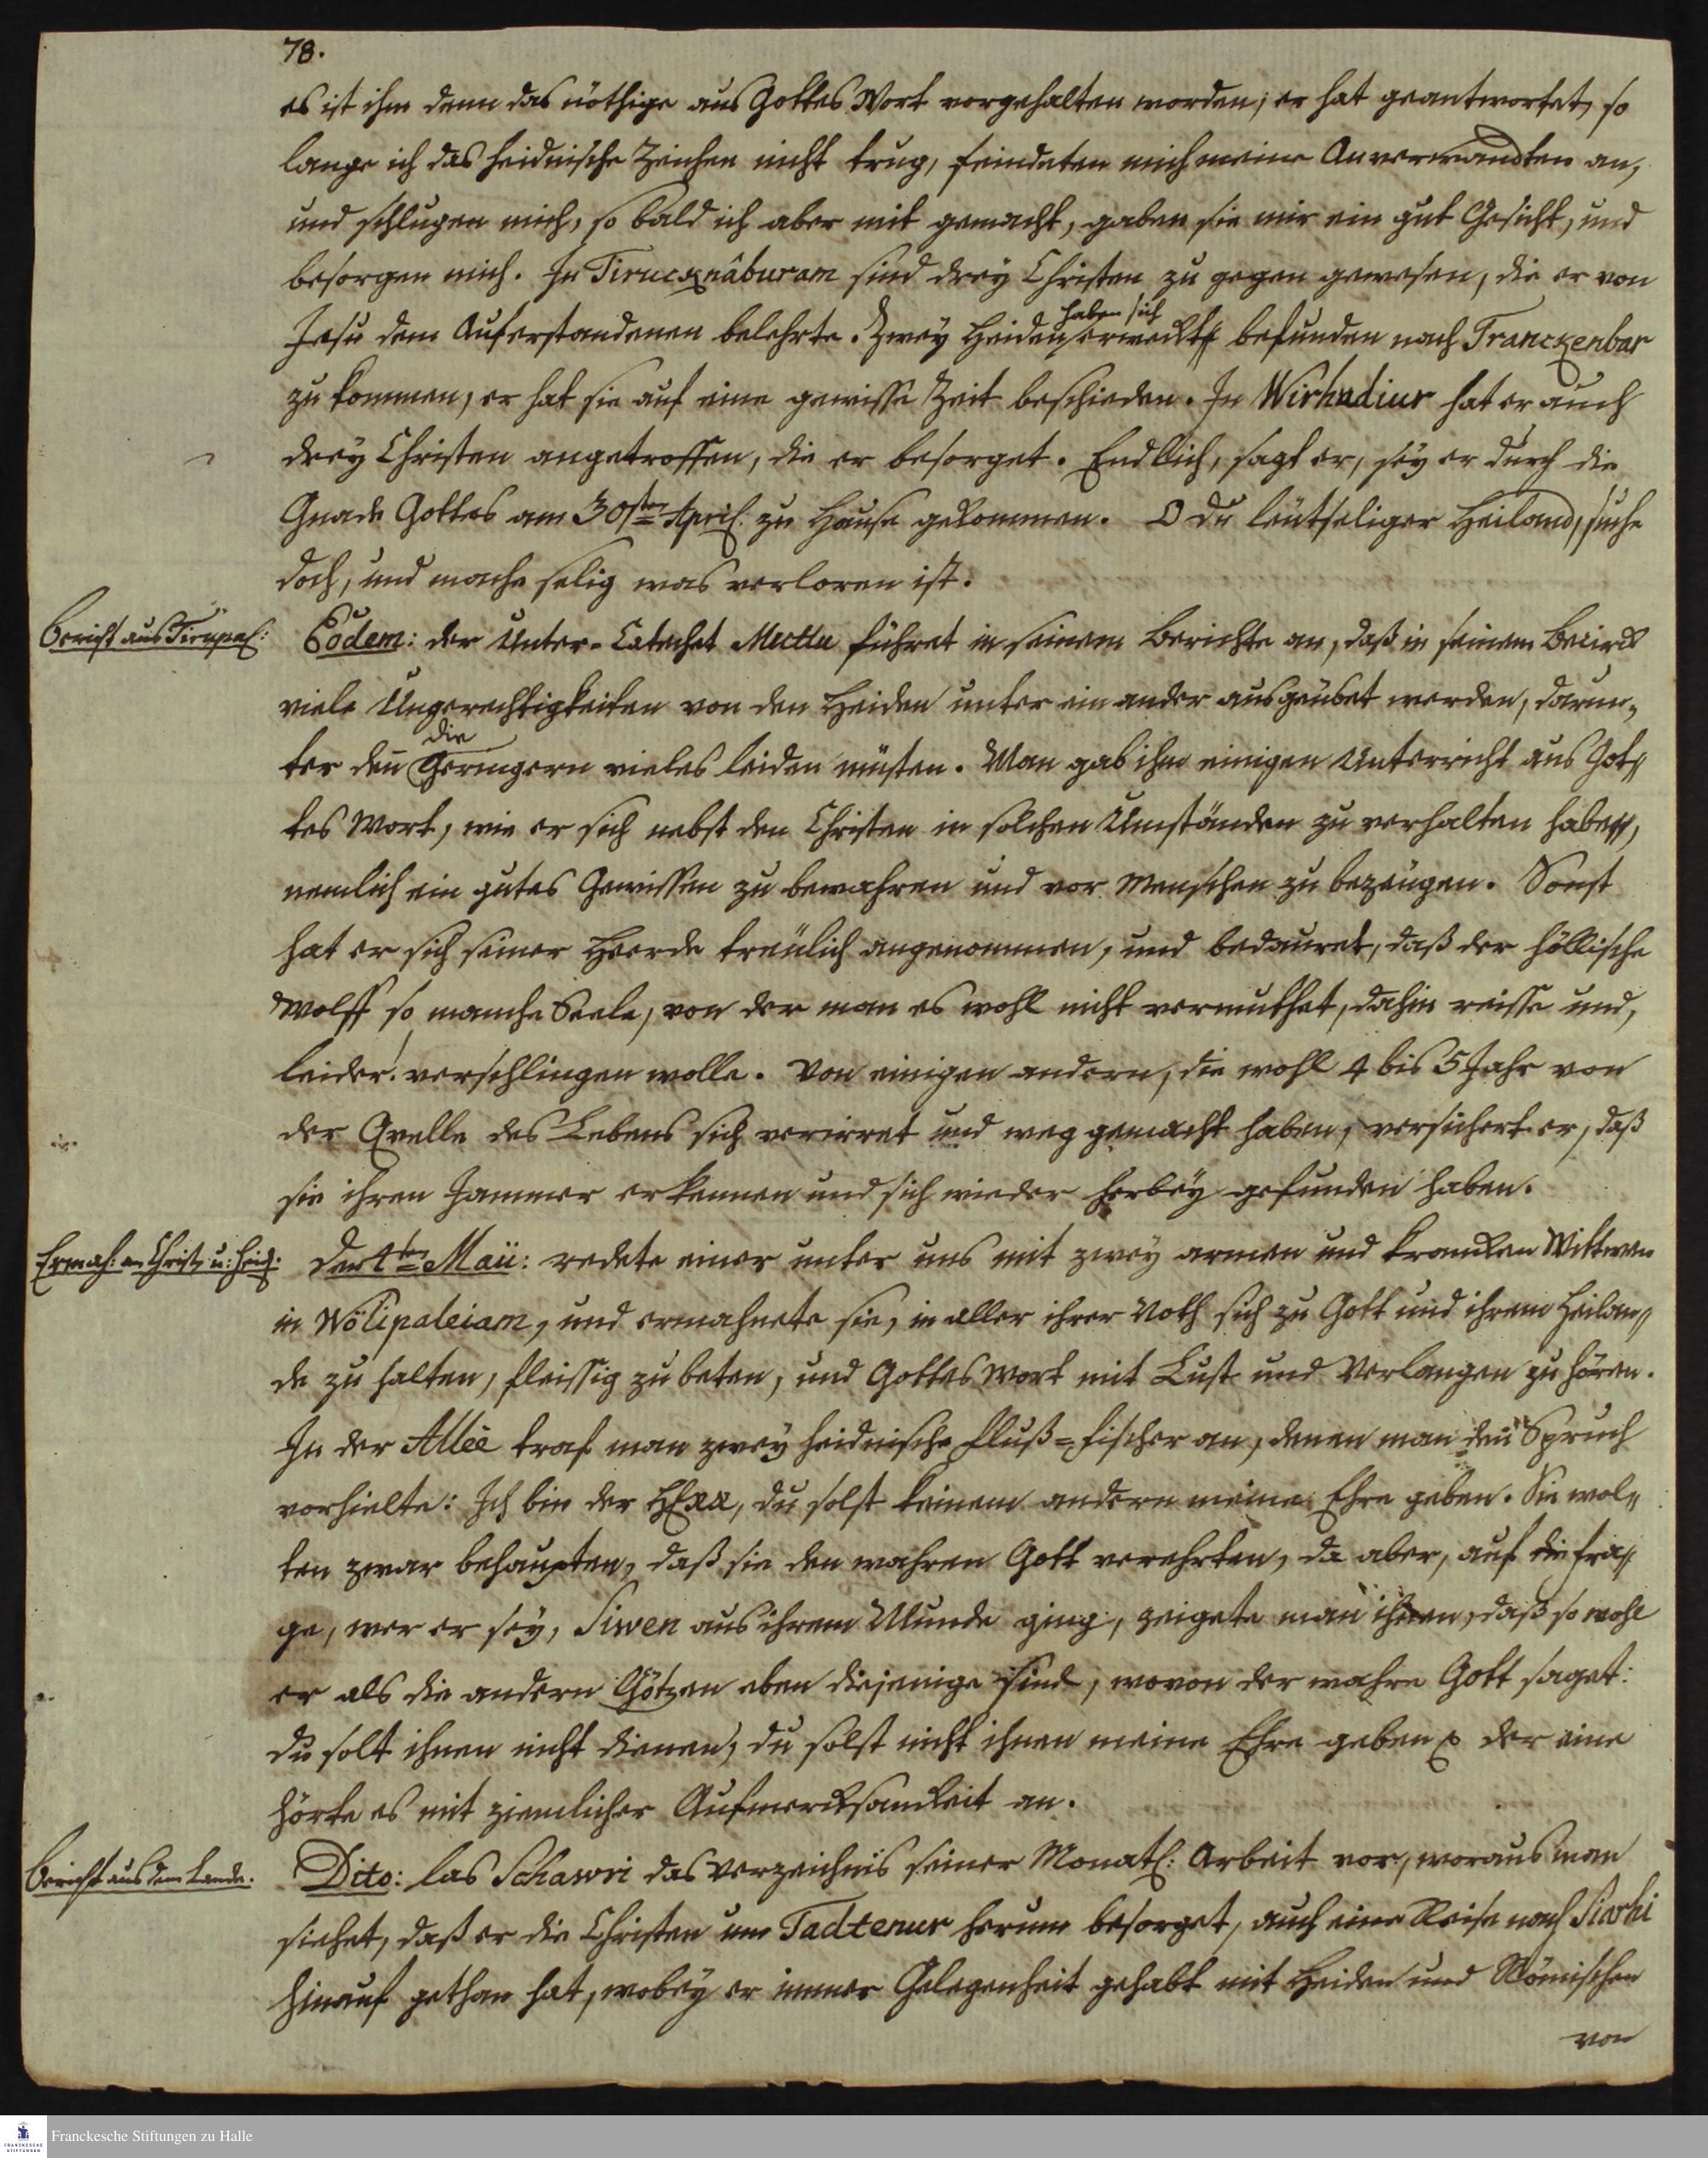 78.
es ist ihm denn das nöthige aus Gottes Wort vorgehalten worden; er hat geantwortet, so
lange ich das heidnische Zeichen nicht trug, feindeten mich meine Anverwandten an,
und schlugen mich, so bald ich aber mit gemacht, gaben sie mir ein gut Gesicht, und
besorgen mich. In Tirucknâburam sind drey Christen zu gegen gewesen, die er von
haben sich
Jesu dem Auferstandenen belehrte. Zwey Heiden erweckt befunden nach Tranckenbar
zu kommen, er hat sie auf eine gewisse Zeit beschieden. In Wirhudiur hat er auch
drey Christen angetroffen, die er besorget. Endlich, sagt er, sey er durch die
Gnade Gottes am 30sten April. zu Hause gekommen. O du leütseliger Heiland, suche
doch, und mache selig was verloren ist.
Bericht aus Tirupal:
Eodem: der Unter-Catechet Muttu führet in seinem Berichte an, daß in seinem Bezirck
viele Ungerechtigkeiten von den Heiden unter ein ander ausgeübet werden, darun-
die
ter deñ Geringern vieles leiden müsten. Man gab ihm einigen Unterricht aus Got-
tes Wort, wie er sich nebst den Christen in solchen Umständen zu verhalten habe,
nemlich ein gutes Gewissen zu bewahren und vor Menschen zu bezeügen. Sonst
hat er sich seiner Heerde treülich angenommen, und bedauret, daß der höllische
Wolff so manche Seele, von der man es wohl nicht vermuthet, dahin reisse und,
leider! verschlingen wolle. Von einigen andern, die wohl 4 bis 5 Jahr von
der Qvelle des Lebens sich verirret und weg gemacht haben, versichert er, daß
sie ihren Jammer erkennen und sich wieder herbey gefunden haben.
Ermah: an Christ u: Heid:
Den 4ten Maii: redete einer unter uns mit zwey armen und krancken Wittwen
in Wölipaleiam, und ermahnete sie, in aller ihrer Noth sich zu Gott und ihrem Heilan-
de zu halten, fleissig zu beten, und Gottes Wort mit Lust und Verlangen zu hören.
In der Allee traf man zwey heidnische Fluß-Fischer an, denen man deñ Spruch
vorhielte: Ich bin der HErr, du solst keinem andern meine Ehre geben. Sie wol-
ten zwar behaupten, daß sie den wahren Gott verehrten, da aber, auf die Fra-
ge, wer er sey, Siwen aus ihrem Munde ging, zeigete man ihnen, daß so wohl
er als die andern Götzen eben diejenige sind, wovon der wahre Gott saget:
du solt ihnen nicht dienen, du solst nicht ihnen meine Ehre geben der eine
hörte es mit ziemlicher Aufmercksamkeit an.
Bericht aus dem Lande.
Dito: las Schawri das Verzeichnis seiner Monatl: Arbeit vor, woraus man
siehet, daß er die Christen um Tadtenur herum besorget, auch eine Reise nach Siarhi
hinauf gethan hat, wobey er immer Gelegenheit gehabt mit Heiden und Römischen
von
Franckesche Stiftungen zu Halle